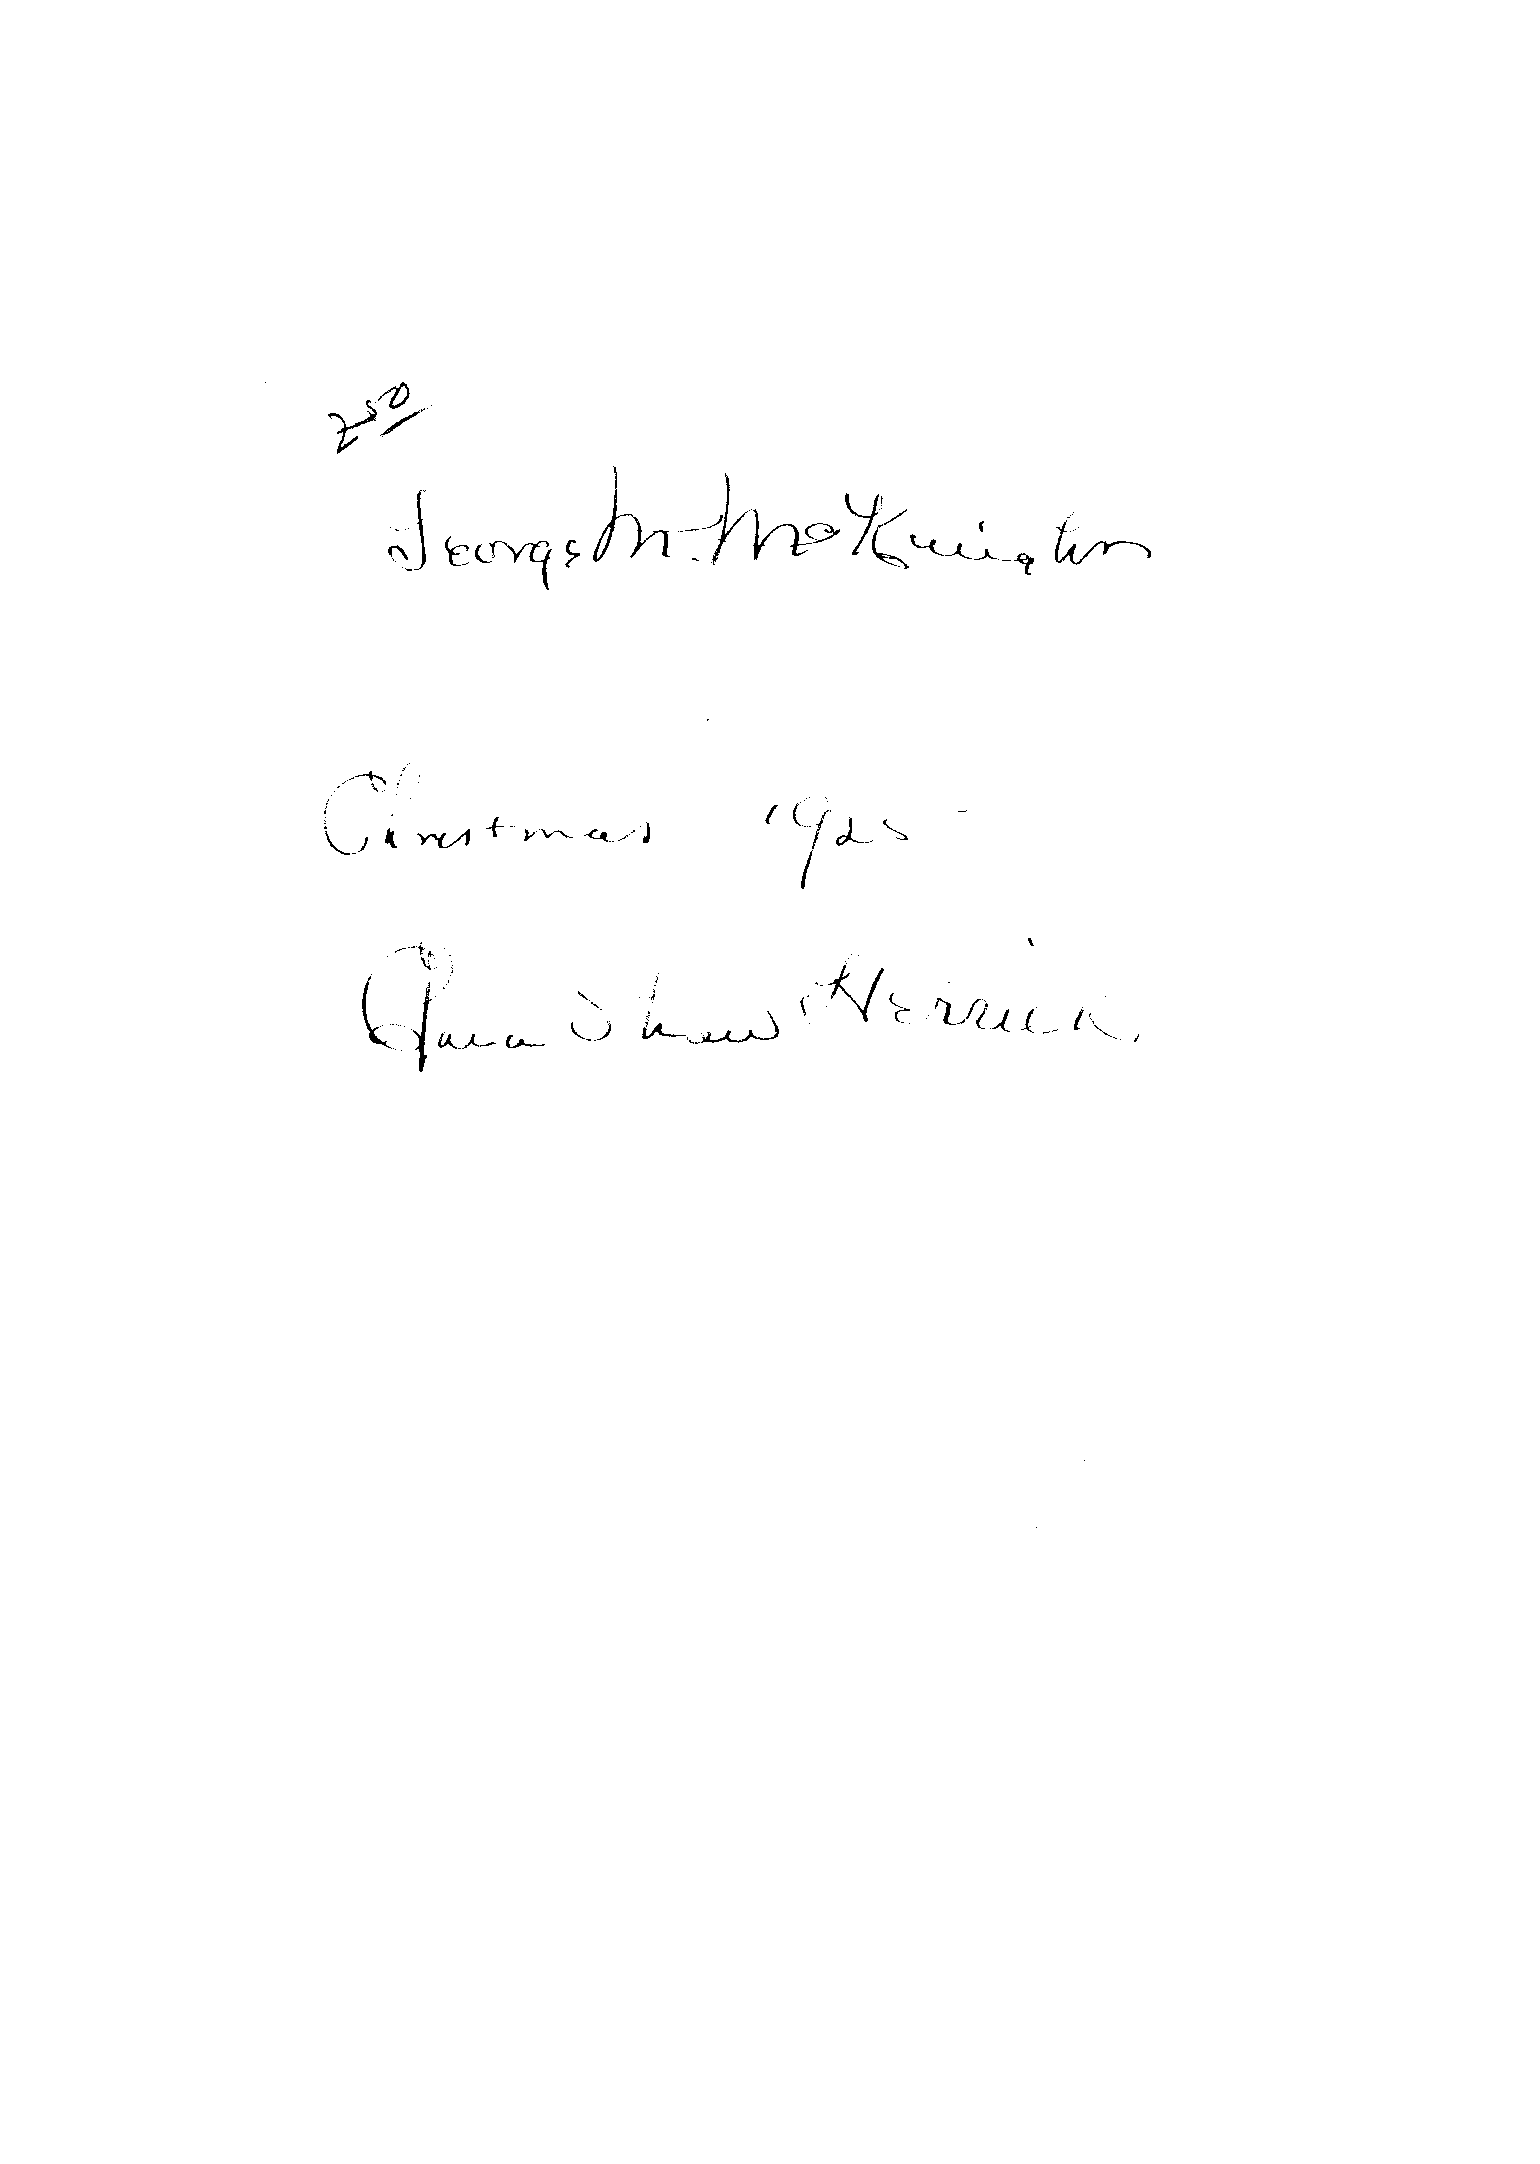 250
George M. McKnight
Christmas 1925
Clara Shaw Herrick.